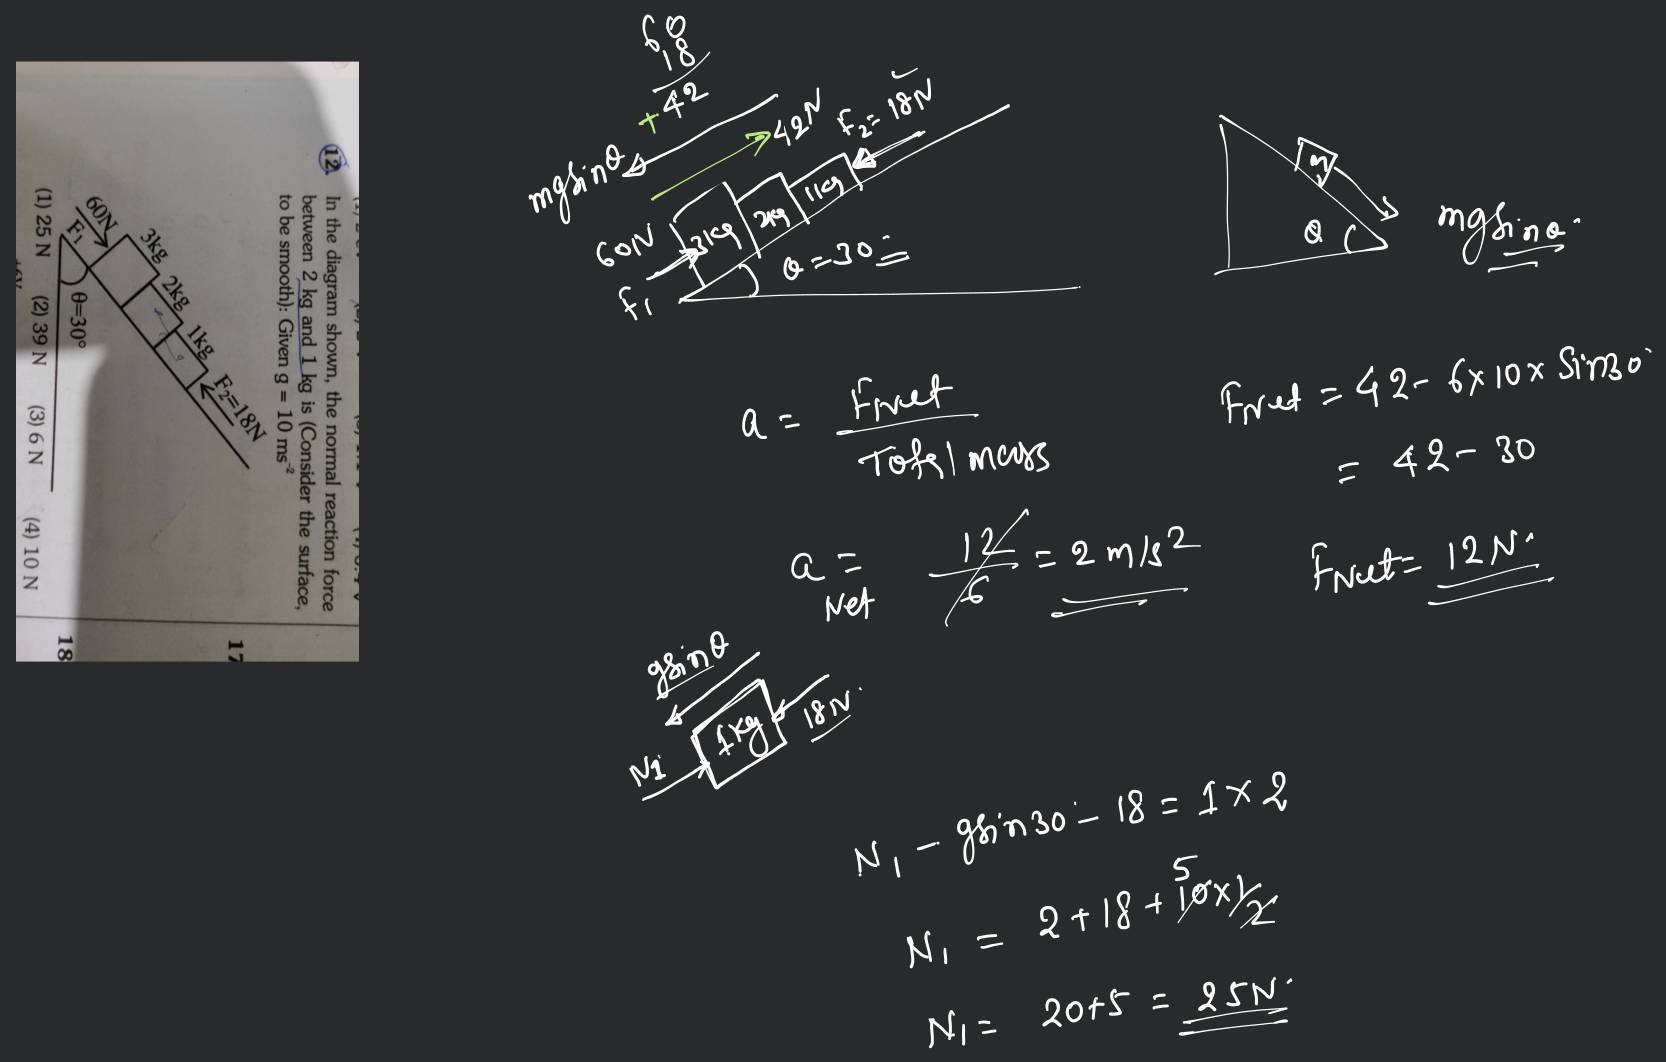 12. In the diagram shown, the normal reaction force
between 2 kg and 1 kg is (Consider the surface,
to be smooth): Given g = 10 ms⁻²
60N
F₁
3kg
2kg
1kg
F₂=18N
θ=30°
(1) 25 N (2) 39 N (3) 6 N (4) 10 N
17
18
60
18
+42
mgsinθ
42N
F₂= 18N
60N
F₁
3kg
2kg
1kg
θ=30°
m
θ
mgsinθ
a = Fnet
Total mass
Fnet = 42- 6x10x Sin30°
= 42- 30
Fnet= 12N
a Net = 12/6 = 2 m/s²
gsinθ
1kg
18N
N1
N₁ - gsin30° - 18 = 1x2
N₁ = 2+18+10x1/2
5
N₁= 20+5 = 25N